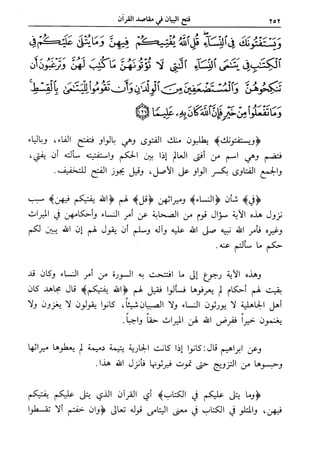 ٢٥٢ فتح البيان في مقاصد القرآن
وَيَسْتَفْتُونَكَ فِي النِّسَاءِ قُلِ اللَّهُ يُفْتِيكُمْ فِيهِنَّ وَمَا يُتْلَى عَلَيْكُمْ فِي
الْكِتَابِ فِي يَتَامَى النِّسَاءِ اللَّاتِي لَا تُؤْتُونَهُنَّ مَا كُتِبَ لَهُنَّ وَتَرْغَبُونَ أَن
تَنكِحُوهُنَّ وَالْمُسْتَضْعَفِينَ مِنَ الْوِلْدَانِ وَأَن تَقُومُوا لِلْيَتَامَى بِالْقِسْطِ
وَمَا تَفْعَلُوا مِنْ خَيْرٍ فَإِنَّ اللَّهَ كَانَ بِهِ عَلِيمًا ١٢٧
﴿ويستفتونك﴾ يطلبون منك الفتوى وهي بالواو فتفتح الفاء، وبالياء
فتضم وهي اسم من أفتى العالم إذا بين الحكم واستفتيته سألته أن يفتي،
والجمع الفتاوى بكسر الواو على الأصل، وقيل يجوز الفتح للتخفيف.
﴿في﴾ شأن ﴿النساء﴾ وميراثهن ﴿قل﴾ لهم ﴿الله يفتيكم فيهن﴾ سبب
نزول هذه الآية سؤال قوم من الصحابة عن أمر النساء وأحكامهن في الميراث
وغيره فأمر الله نبيه صلى الله عليه وآله وسلم أن يقول لهم إن الله يبين لكم
حكم ما سألتم عنه.
وهذه الآية رجوع إلى ما افتتحت به السورة من أمر النساء وكان قد
بقيت لهم أحكام لم يعرفوها فسألوا فقيل لهم ﴿الله يفتيكم﴾ قال مجاهد كان
أهل الجاهلية لا يورثون النساء ولا الصبيان شيئاً، كانوا يقولون لا يغزون ولا
يغنمون خيراً ففرض الله لهن الميراث حقاً واجباً.
وعن ابراهيم قال: كانوا إذا كانت الجارية يتيمة دميمة لم يعطوها ميراثها
وحبسوها من التزويج حتى تموت فيرثونها فأنزل الله هذا.
﴿وما يتلى عليكم في الكتاب﴾ أي القرآن الذي يتلى عليكم يفتيكم
فيهن، والمتلو في الكتاب في معنى اليتامى قوله تعالى ﴿وان خفتم ألا تقسطوا